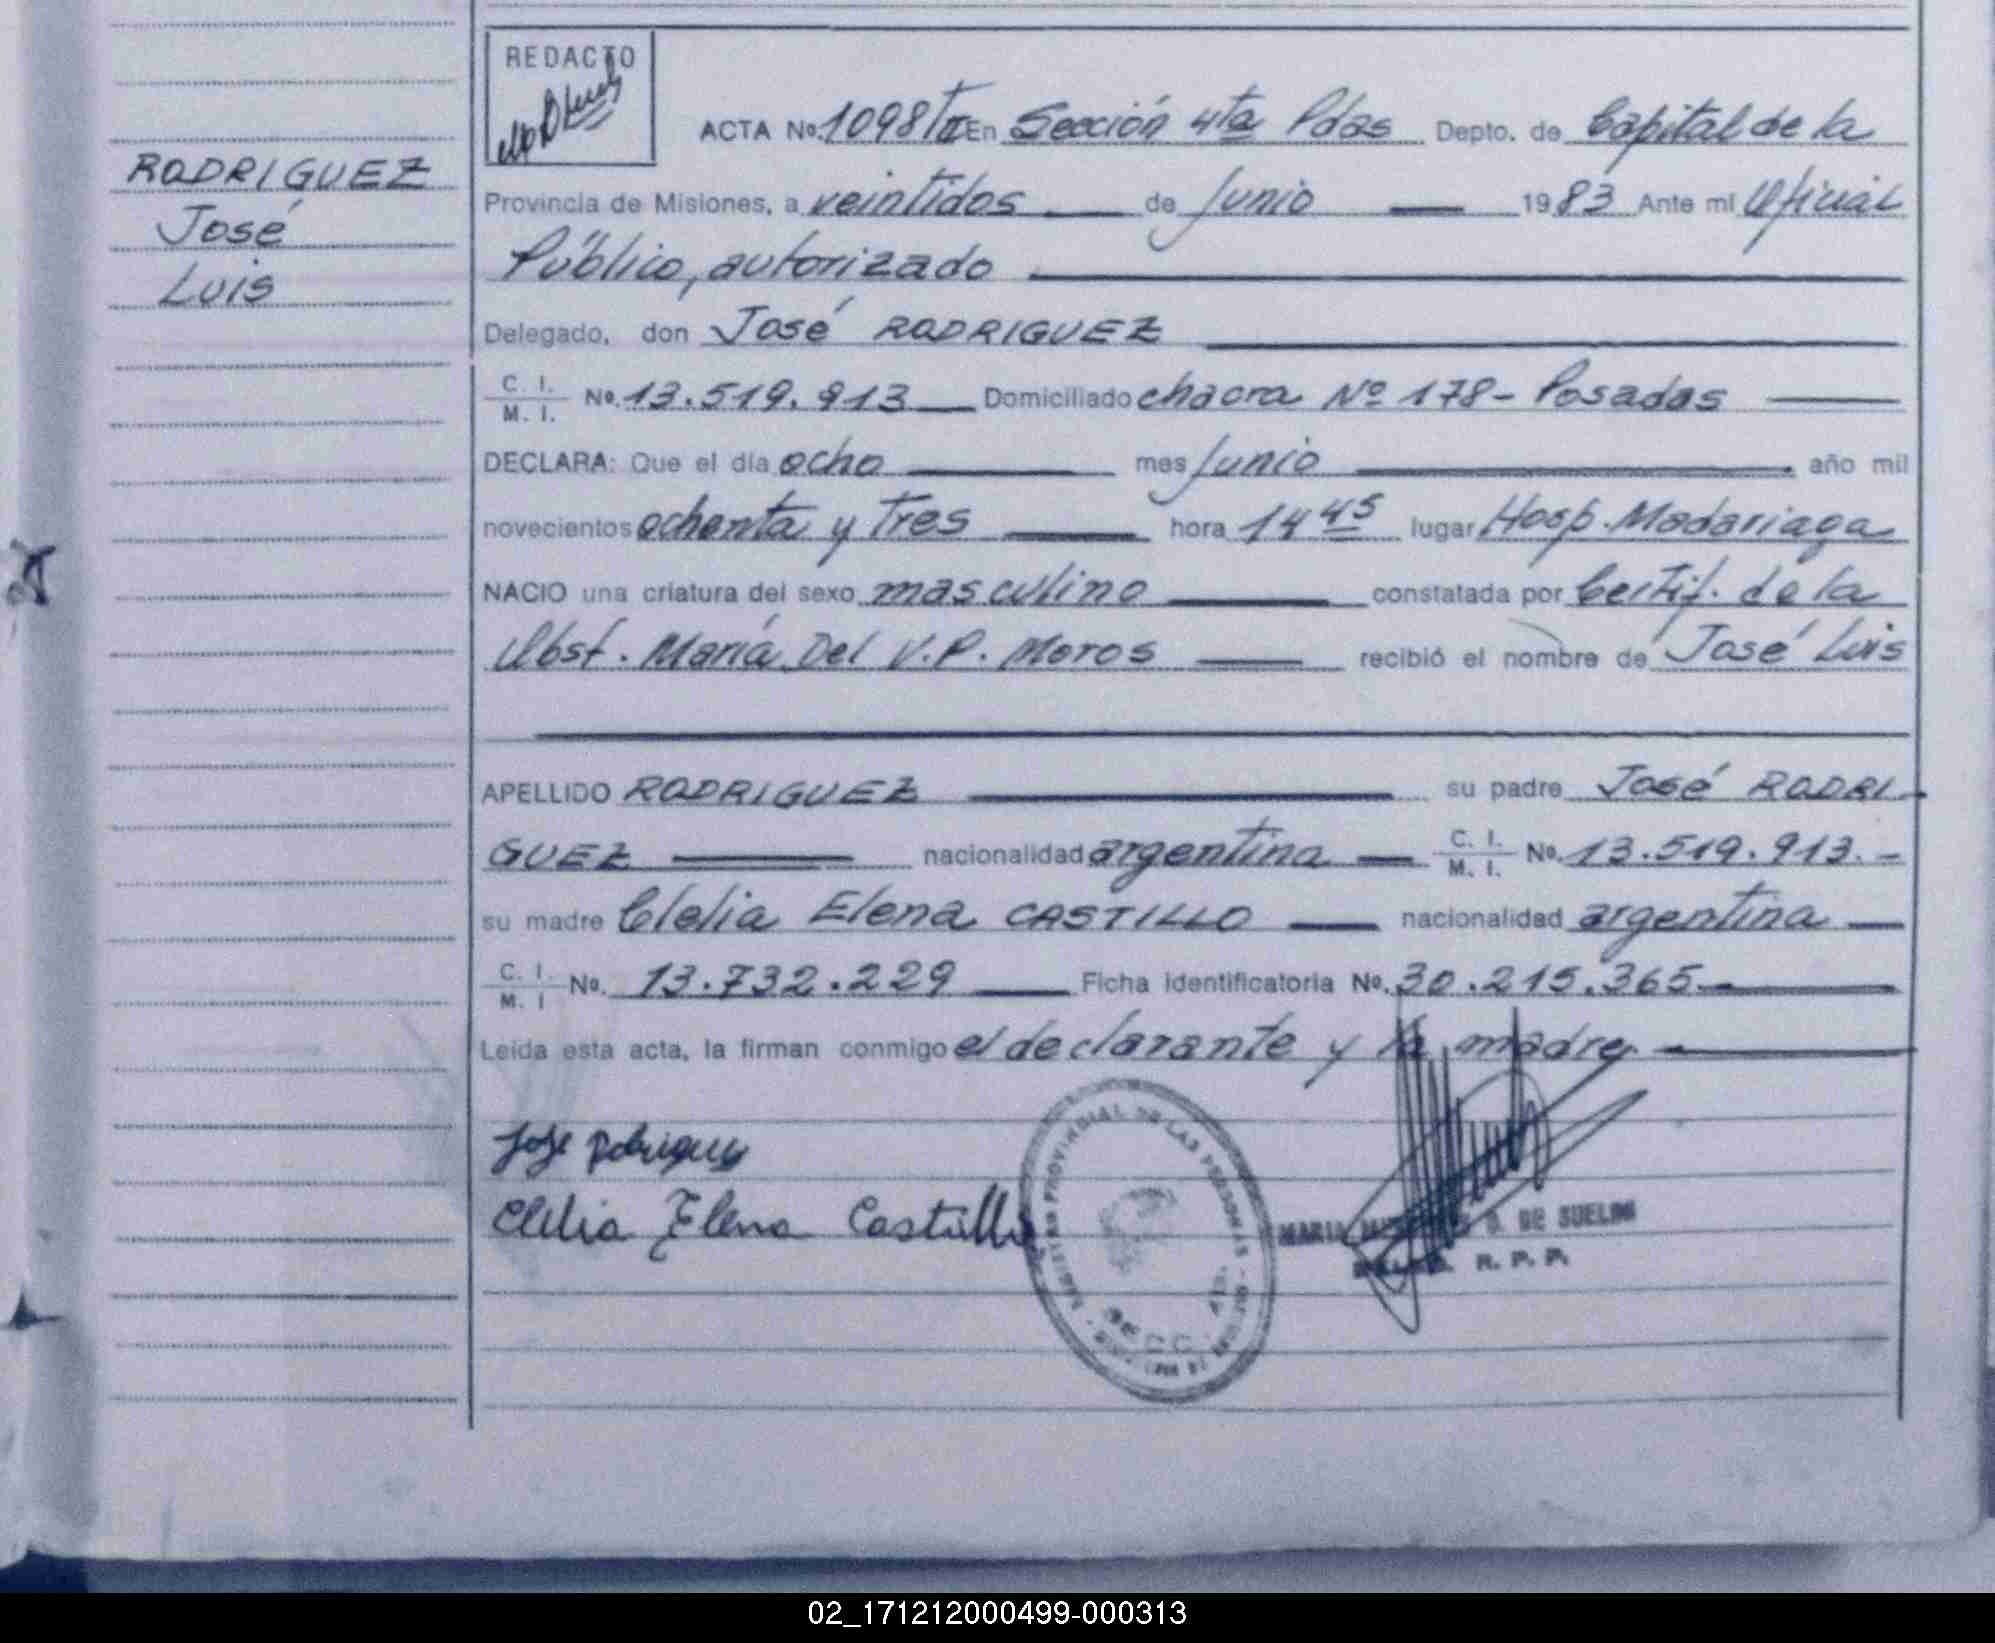 REDACTO
ACTA No. 1098/TII En Sección 4ta Pdas Depto. de Capital de la
RODRIGUEZ
José
Luis
Provincia de Misiones, a veintidos de Junio 1983 Ante mi Oficial
Público, autorizado
Delegado, don José RODRIGUEZ
C. I. / M. I. No. 13.519.913 Domiciliado chacra Nº 178 - Posadas
DECLARA: Que el día ocho mes Junio año mil
novecientos ochenta y Tres hora 14 45 lugar Hosp. Madariaga
NACIO una criatura del sexo masculino constatada por Certif. de la
Obst. María Del V.P. Moros recibió el nombre de José Luis
APELLIDO RODRIGUEZ su padre José RODRI-
GUEZ nacionalidad argentina C. I. / M. I. No. 13.519.913.-
su madre Clelia Elena CASTILLO nacionalidad argentina
C. I. / M. I No. 13.732.229 Ficha identificatoria No. 30.215.365
Leida esta acta, la firman conmigo el declarante y la madre
José Rodriguez
Clelia Elena Castillo
REGISTRO PROVINCIAL DE LAS PERSONAS
MARIA DE SUELDO
R. P. P.
02_171212000499-000313